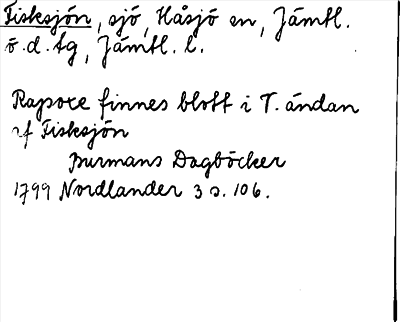 Fisksjön, sjö, Håsjö sn, Jämtl.
ö.d. tg, Jämtl. l.
Rapoce finnes blott i T. ändan
af Fisksjön
Burmans Dagböcker
1799 Nordlander 3 s. 106.